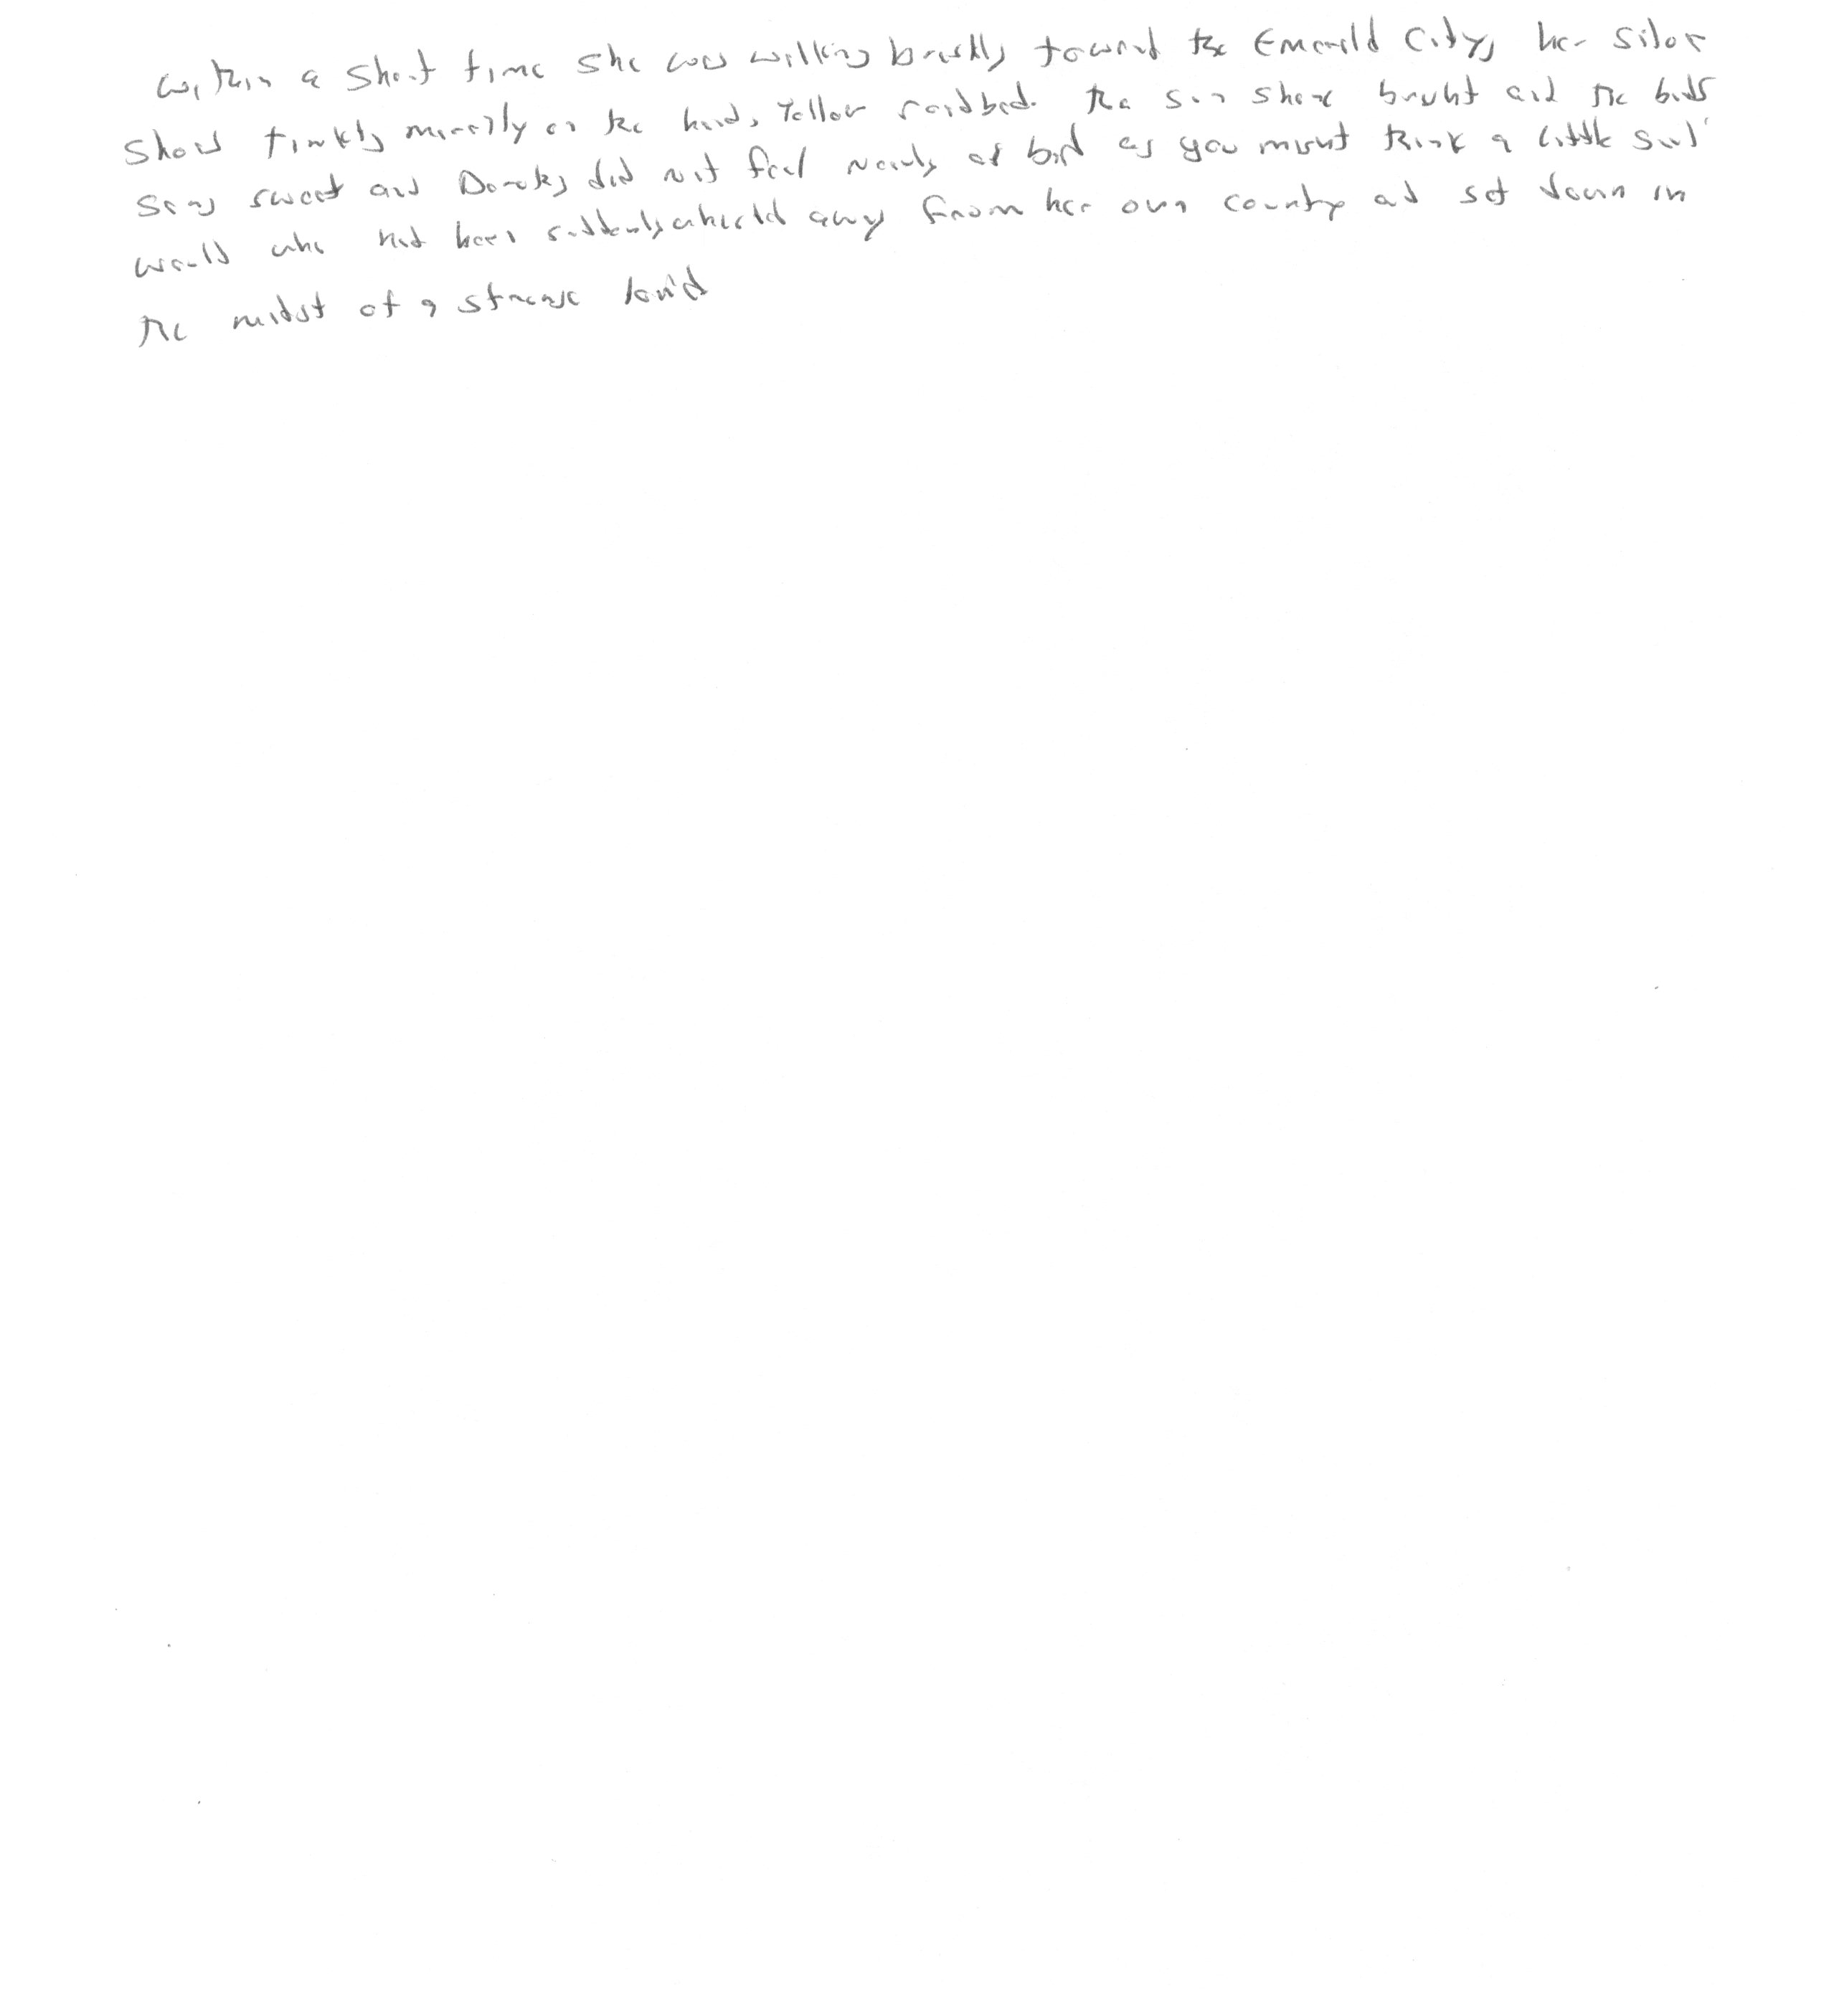 Within a short time she was walking briskly toward the Emerald City, her silver
shoes tinkling merrily on the hard, yellow roadbed. The sun shone bright and the birds
sang sweet and Dorothy did not feel nearly as bad as you might think a little girl
would who had been suddenly whisked away from her own country and set down in
the midst of a strange land